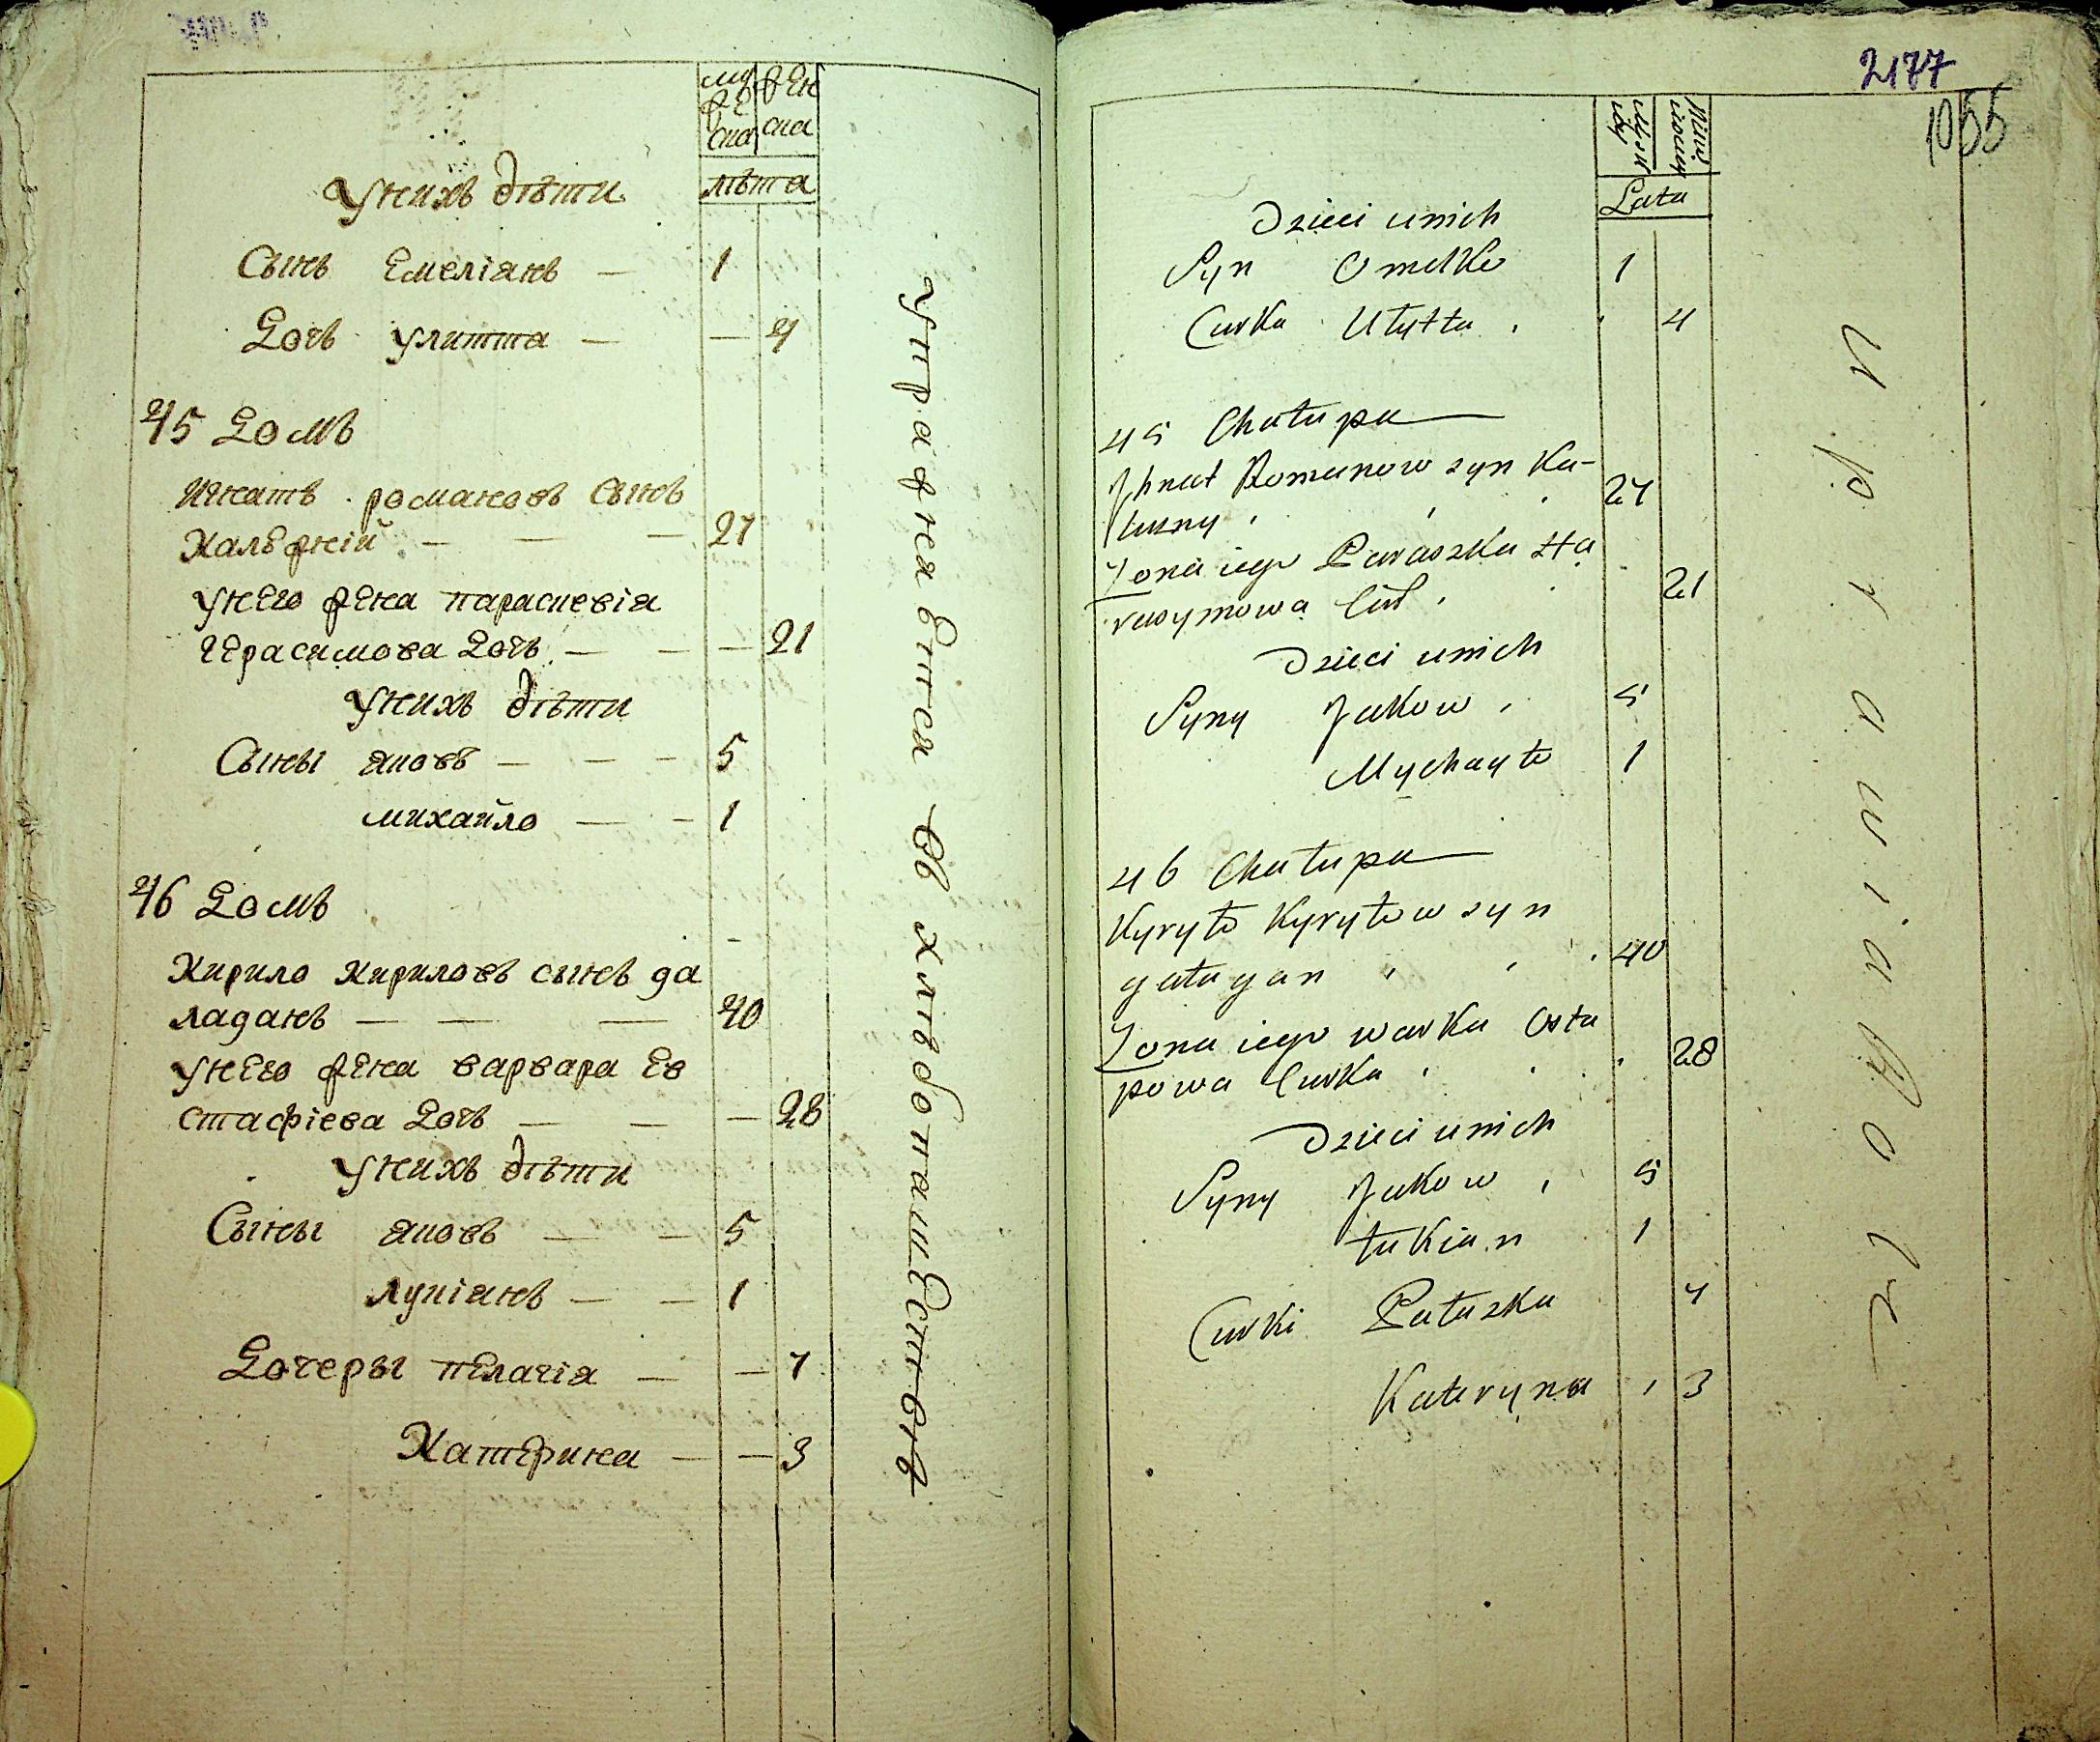 муже
ска
жен
ска
лѣта
У нихъ дѣти
Сынъ Емеліянъ — 1
Дочь улитта — — 4
45 Домъ
Игнатъ романовъ сынъ
Кальжній — — — 27
У него жена параскевія
герасимова Дочь — — — 21
У нихъ дѣти
Сыны яковъ — — — 5
михайло — — 1
46 Домъ
Кирило Кириловъ сынъ га
лаганъ — — — 40
У него жена варвара Ев
стафіева Дочь — — — 28
У нихъ дѣти
Сыны яковъ — — 5
лукіянъ — — 1
Дочеры пелагія — — 7
Катерина — — 3
Упражняется въ хлѣбопашествѣ
2177
1055
Lata
Dzieci u nich
Syn Omelko 1
Curka Ulytta 4
45 Chałupa
Ihnat Romanow syn Ka-
luzny 27
Żona iego Paraszka Ha
rasymowa Cur 21
Dzieci u nich
Syny Jakow 5
Mychayło 1
46 Chałupa
Kyryło Kyryłow syn
gałagan 40
Żona iego warka Osta
powa Curka 28
Dzieci u nich
Syny Jakow 5
łukian 1
Curki Pałazka 7
Kateryna 3